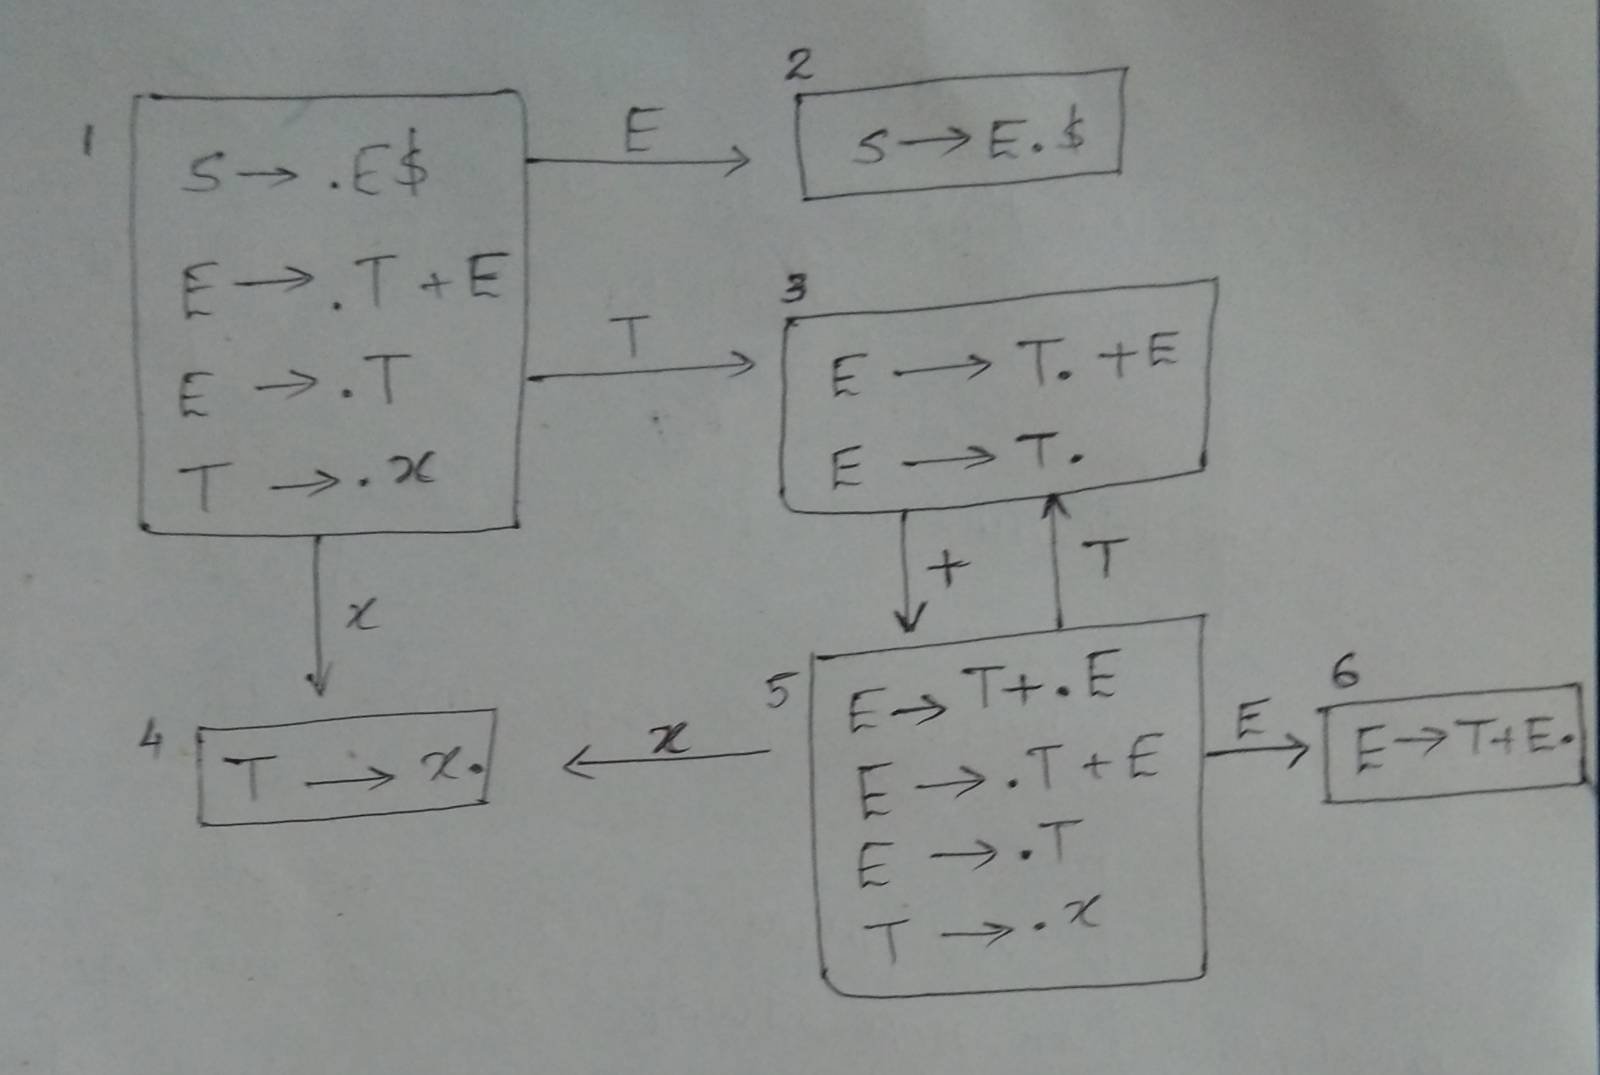 1
S → .E$
E → .T + E
E → .T
T → .x
E
2
S → E.$
T
3
E → T. + E
E → T.
x
+
T
4
T → x.
x
5
E → T+.E
E → .T + E
E → .T
T → .x
E
6
E → T+E.